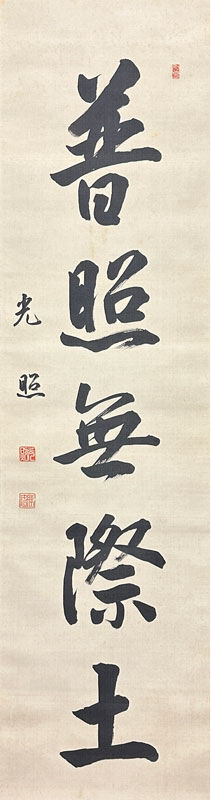 普照無際土
光照